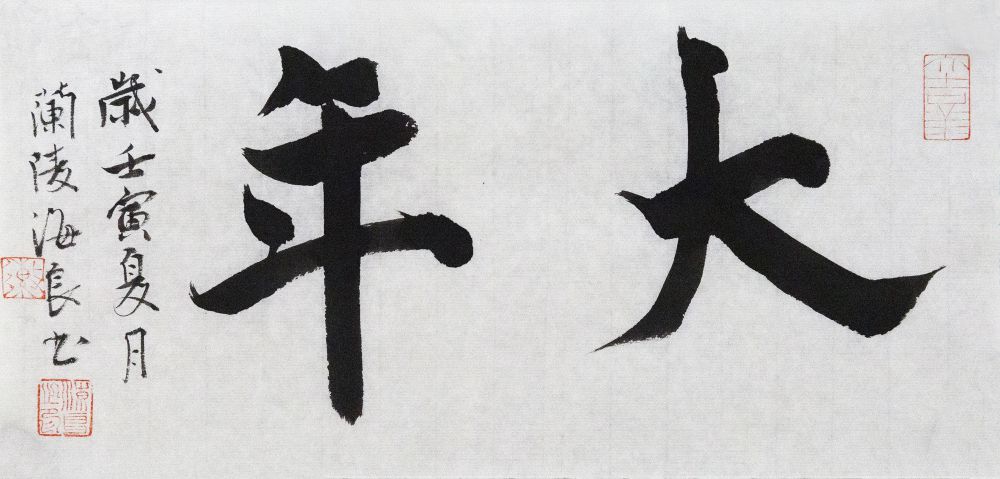 大年
歲壬寅夏月
蘭陵海良书